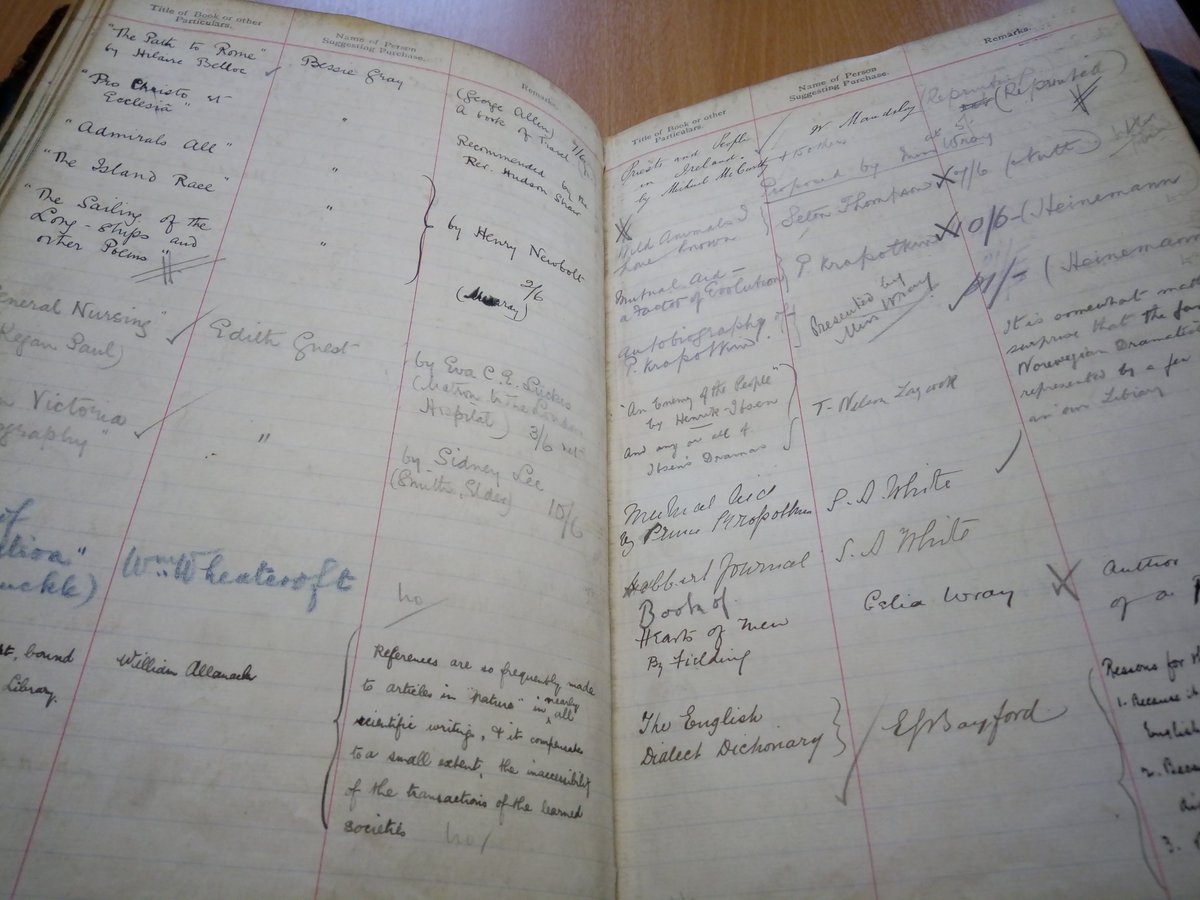 Title of Book or other
Particulars.
Name of Person
Suggesting Purchase.
Remarks.
"The Path to Rome"
by Hilaire Belloc
Bessie Gray
(George Allen) 7/6
A book of Travel
"Pro Christo et
Ecclesia"
"
Recommended by the
Rev. Hudson Shaw
"Admirals All"
"
"The Island Race"
"
by Henry Newbolt
2/6
"The Sailing of the
Long-ships and
other Poems"
"
General Nursing"
Kegan Paul)
Edith Guest
by Eva C. E. Luckes
(Matron to the London
Hospital) 3/6 net
Victoria
ography"
"
by Sidney Lee
(Smith, Elder) 10/6
Wm Wheatcroft
no
bound
Library.
William Allanach
References are so frequently made
to articles in "Nature" in nearly all
scientific writings, & it compensates
to a small extent, the inaccessibility
of the transactions of the learned
societies no
Title of Book or other
Particulars.
Name of Person
Suggesting Purchase.
Remarks.
Priests and People
in Ireland.
by Michael McCarthy
W. Maudsley
& 3 others
(Reprinted)
Proposed by Miss Wray
Wild Animals I
have known
Seton Thompson
7/6 (Nutt)
Mutual Aid –
a Factor of Evolution
P. Krapotkin
10/6 – (Heinemann)
Autobiography of
P. Krapotkin.
Presented by
Miss Wray
(Heinemann
"An Enemy of the People"
by Henrik Ibsen
And any or all of
Ibsen's Dramas
T. Nelson Laycock
It is somewhat
surprise that the
Norwegian Dramatist
represented by a few
in our Library
Mutual Aid
by Prince Kropotkin
S. A. White
Hibbert Journal
S. A White
Book of
Hearts of Men
By Fielding
Celia Wray
Author
of a
The English
Dialect Dictionary
E G Bayford
Reasons for th
1. Because it
English
2. Beca
3.